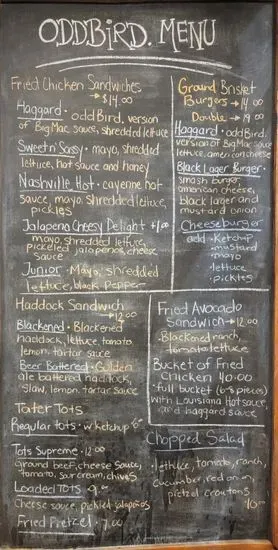 ODDBIRD. MENU
Fried Chicken Sandwiches
→ $14.00
Haggard • oddBird, version
of BigMac sauce, shredded lettuce
Sweet n' Sassy • mayo, shredded
lettuce, hot sauce and honey
Nashville Hot • cayenne hot
sauce, mayo, shredded lettuce,
pickles
Jalapeno Cheesy Delight +1.00
mayo, shredded lettuce,
pickeled jalapenos, cheese
sauce
Junior • Mayo, shredded
lettuce, black pepper
Haddock Sandwich
→ 12.00
Blackened • Blackened
haddock, lettuce, tomato
lemon tartar sauce
Beer Battered • Golden
ale battered haddock,
slaw, lemon tartar sauce
Tater Tots
Regular tots • w ketchup 6-
Tots Supreme • 12.00
Ground beef, cheese sauce,
tomato, sour cream, chives
Loaded TOTS 9.00
Cheese sauce, pickled jalapeños
Fried Pretzel • 7.00
Ground Brisket
Burgers → 14.00
Double → 19.00
Haggard • oddBird,
version of Big Mac sauce
lettuce, american cheese
Black Lager Burger •
smash burger
american cheese,
black lager and
mustard onion
Cheeseburger
add • Ketchup
• mustard
• mayo
• lettuce
• pickles
Fried Avocado
Sandwich → 12.00
• Blackened ranch,
tomato, lettuce
Bucket of Fried
Chicken 40.00
• full bucket
with Louisiana Hot sauce
and haggard sauce
Chopped Salad
• lettuce, tomato, ranch,
cucumber, red onion,
pretzel croutons